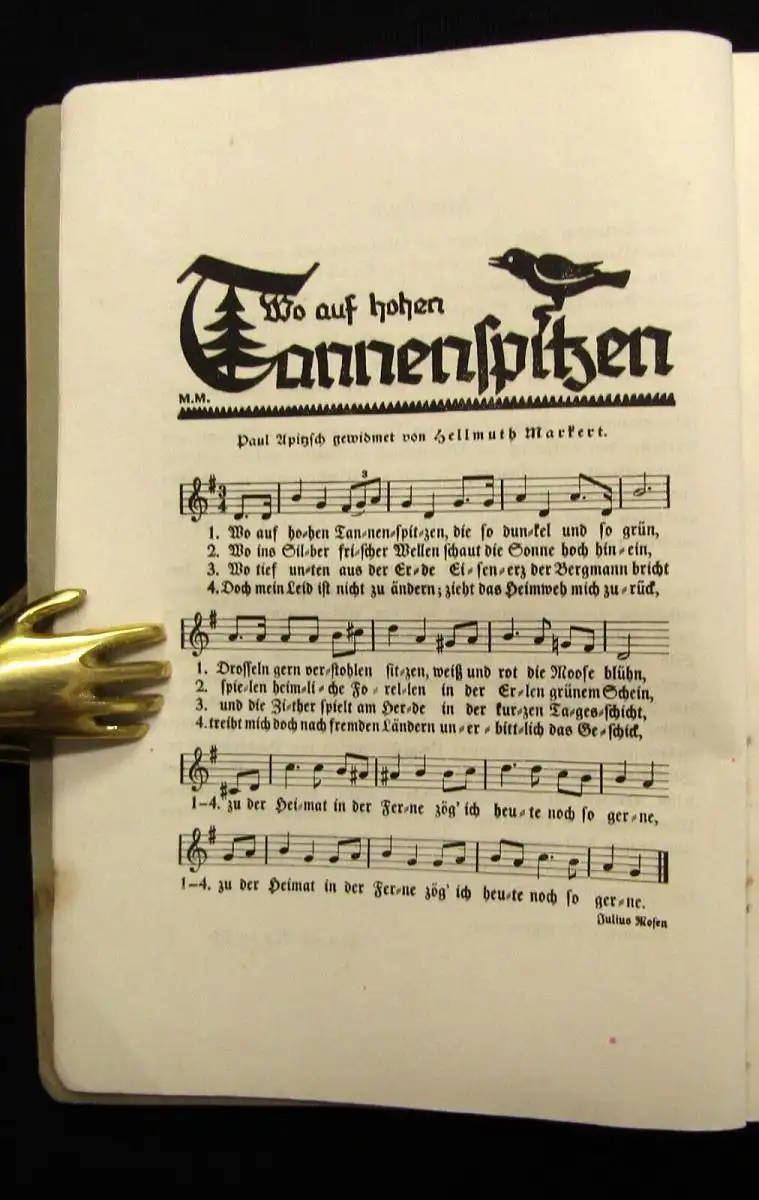 Wo auf hohen
Tannenspitzen
M.M.
Paul Apitzsch gewidmet von Hellmuth Markert.
3
3
4
1. Wo auf ho-hen Tan-nen-spit-zen, die so dun-kel und so grün,
2. Wo ins Sil-ber fri-scher Wellen schaut die Sonne hoch hin-ein,
3. Wo tief un-ten aus der Er-de Ei-sen-erz der Bergmann bricht
4. Doch mein Leid ist nicht zu ändern; zieht das Heimweh mich zu-rück,
1. Drosseln gern ver-stohlen sit-zen, weiß und rot die Moose blühn,
2. spie-len heim-li-che Fo-rel-len in der Er-len grünem Schein,
3. und die Zi-ther spielt am Her-de in der kur-zen Ta-ges-schicht,
4. treibt mich doch nach fremden Ländern un-er-bitt-lich das Ge-schick,
1-4. zu der Hei-mat in der Fer-ne zög' ich heu-te noch so ger-ne,
1-4. zu der Heimat in der Fer-ne zög' ich heu-te noch so ger-ne.
Julius Mosen